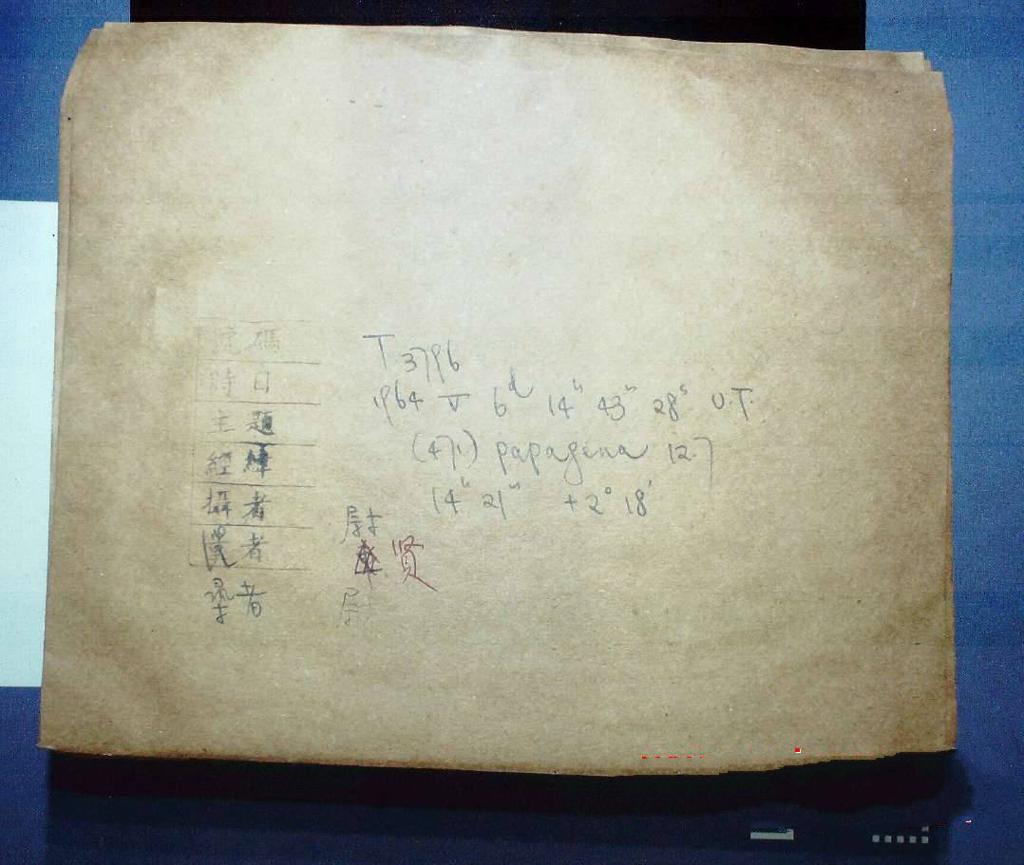 號碼 T 3796
時日 1964 V 6ᵈ 14ʰ 43ᵐ 28ˢ U.T.
主題 (471) papagena 12.7
經緯 14ʰ 21ᵐ +2° 18'
攝者
者 贤
者